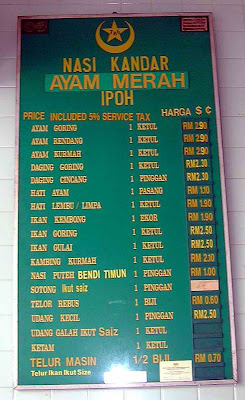 NASI KANDAR
AYAM MERAH
IPOH
PRICE INCLUDED 5% SERVICE TAX HARGA $ ¢
AYAM GORING 1 KETUL RM 2.90
AYAM RENDANG 1 KETUL RM 2.90
AYAM KURMAH 1 KETUL RM 2.90
DAGING GORING 1 KETUL RM2.30
DAGING CINCANG 1 PINGGAN RM2.30
HATI AYAM 1 PASANG RM 1.10
HATI LEMBU / LIMPA 1 KETUL RM 1.90
IKAN KEMBONG 1 EKOR RM 1.90
IKAN GORING 1 KETUL RM2.50
IKAN GULAI 1 KETUL RM2.50
KAMBING KURMAH 1 KETUL RM 2.10
NASI PUTEH BENDI TIMUN 1 PINGGAN RM 1.00
SOTONG Ikut saiz 1 PINGGAN
TELOR REBUS 1 BIJI RM 0.60
UDANG KECIL 1 PINGGAN RM2.50
UDANG GALAH IKUT Saiz 1 KETUL
KETAM 1 KETUL
TELUR MASIN 1/2 BIJI RM 0.70
Telur Ikan Ikut Size